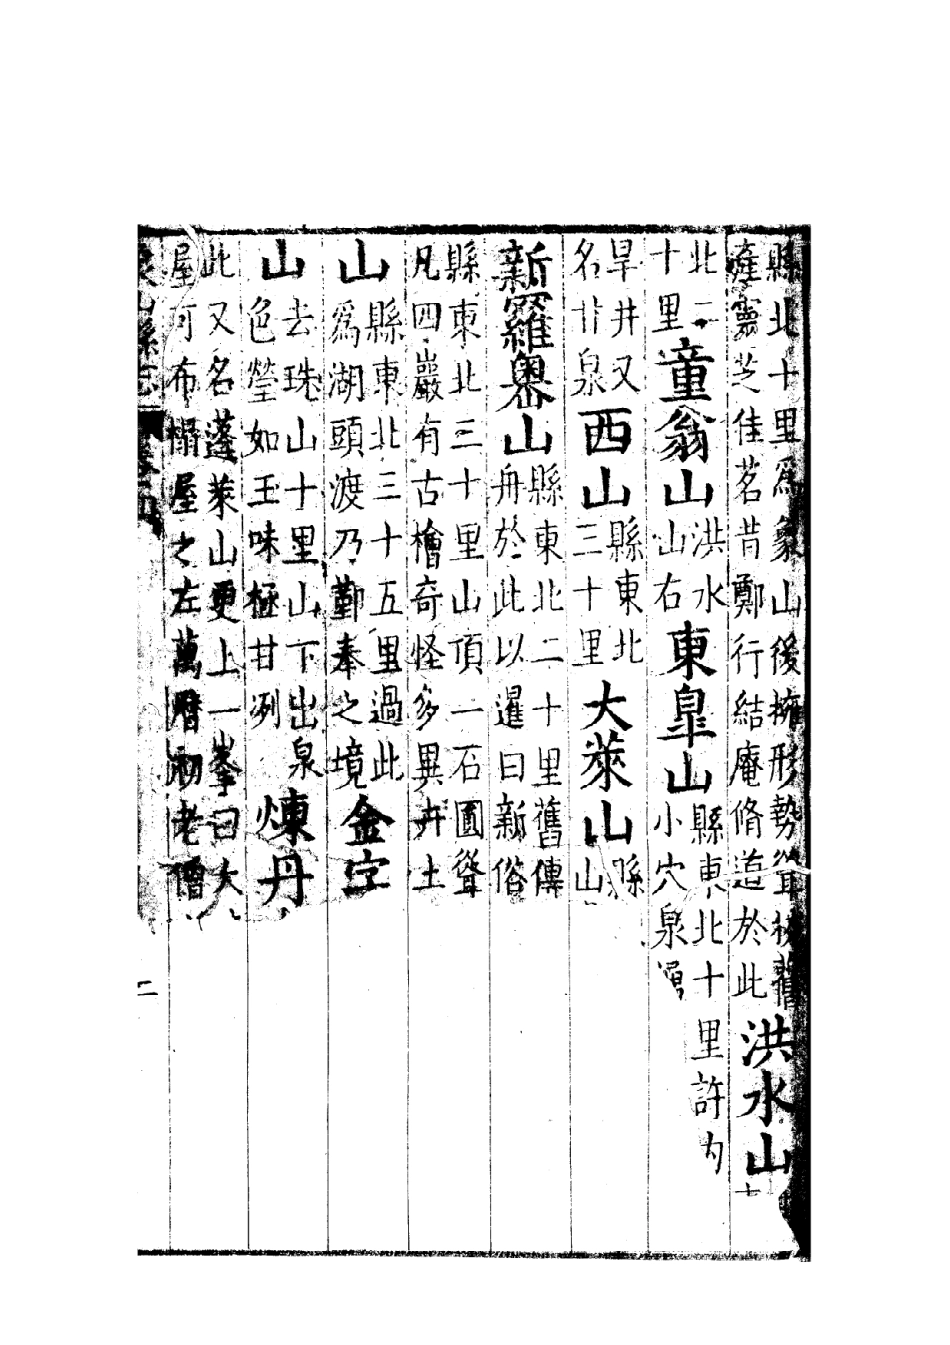 縣北十里爲象山後擁形勢聳
産靈芝佳茗昔鄭行結庵脩造於此
洪水山
北二
十里
童翁山
洪水
山右
東皐山
縣東北十里許内
小穴泉湧
旱井又
名甘泉
西山
縣東北
三十里
大萊山
縣
山
新羅嶴山
縣東北二十里舊傳
舟於此以暹曰新俗
縣東北三十里山頂一石圓聳
凡四巖有古檜奇怪多異卉土
山
縣東北三十五里過此
爲湖頭渡乃鄞奉之境
金字
山
去珠山十里山下出泉
色瑩如玉味極甘冽
煉丹
此又名蓬萊山更上一峯曰大
屋可布榻屋之左萬曆初老僧
象山縣志
二